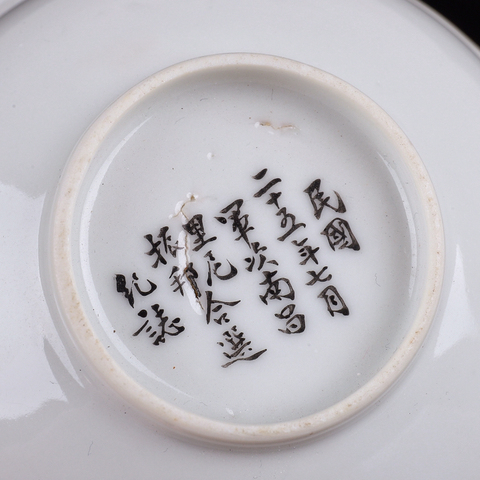 民國
二十五年七月
軍次南昌
里尼合選
振
紀誌